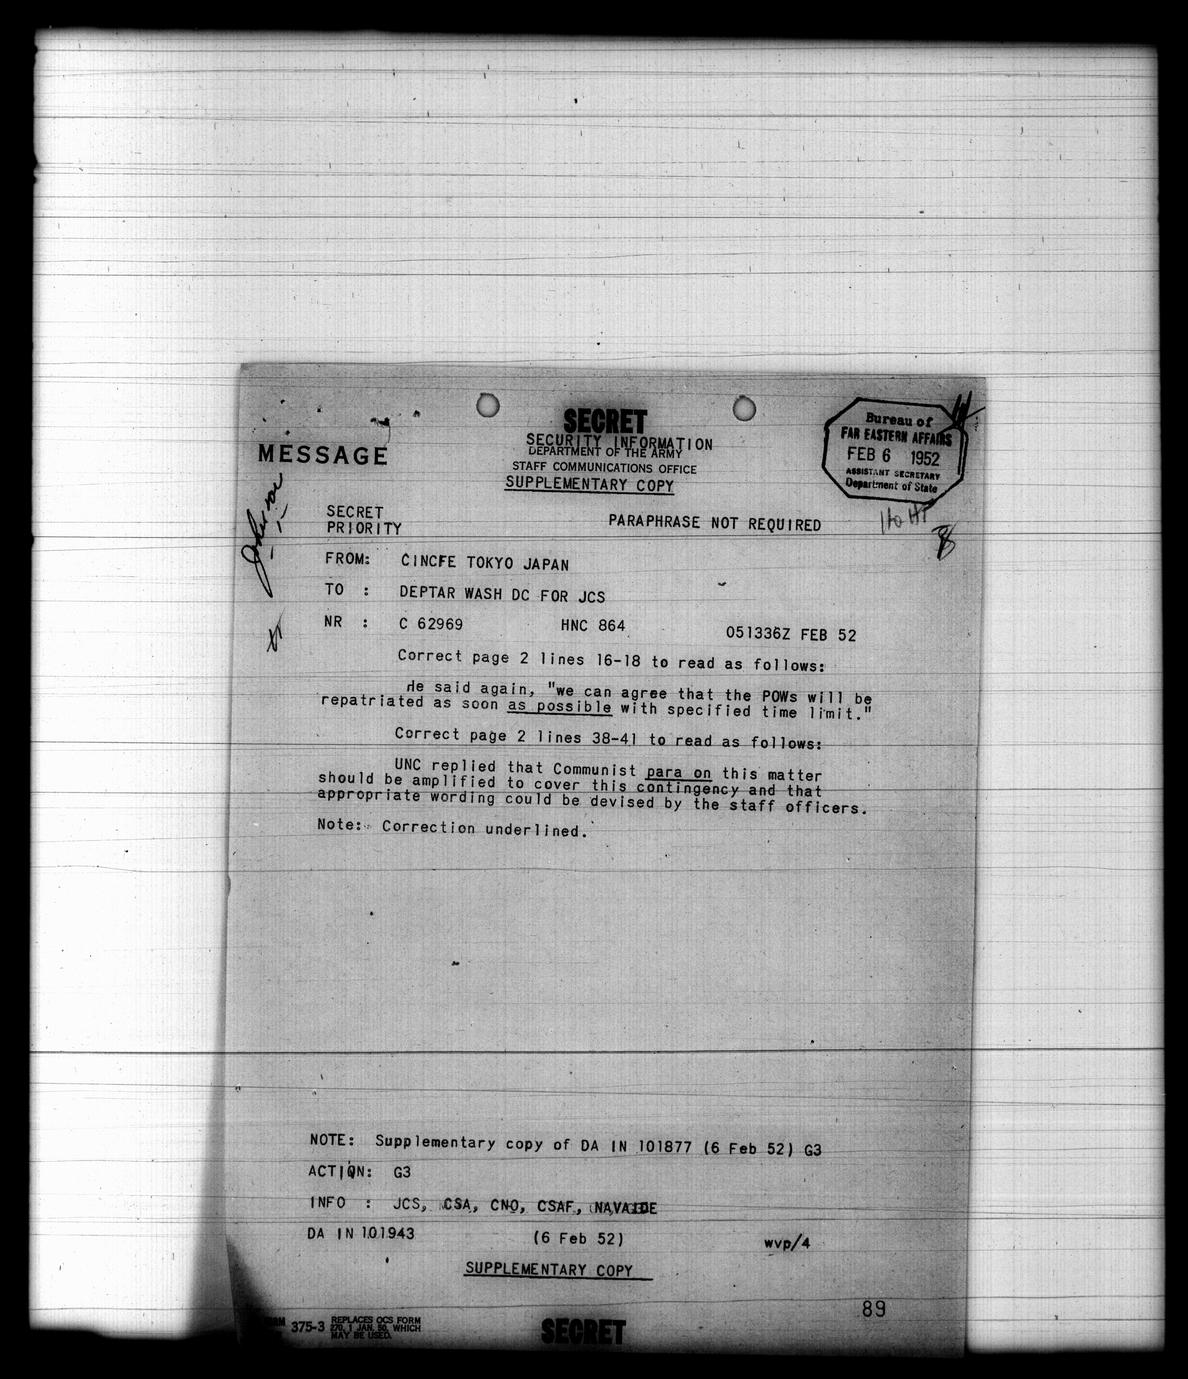 SECRET
SECURITY INFORMATION
DEPARTMENT OF THE ARMY
STAFF COMMUNICATIONS OFFICE
SUPPLEMENTARY COPY
MESSAGE
Bureau of
FAR EASTERN AFFAIRS
FEB 6 1952
ASSISTANT SECRETARY
Department of State
SECRET
PRIORITY
PARAPHRASE NOT REQUIRED
FROM: CINCFE TOKYO JAPAN
TO : DEPTAR WASH DC FOR JCS
NR : C 62969 HNC 864 051336Z FEB 52
Correct page 2 lines 16-18 to read as follows:
He said again, "we can agree that the POWs will be
repatriated as soon as possible with specified time limit."
Correct page 2 lines 38-41 to read as follows:
UNC replied that Communist para on this matter
should be amplified to cover this contingency and that
appropriate wording could be devised by the staff officers.
Note: Correction underlined.
NOTE: Supplementary copy of DA IN 101877 (6 Feb 52) G3
ACTION: G3
INFO : JCS, CSA, CNO, CSAF, NAVAIDE
DA IN 101943 (6 Feb 52) wvp/4
SUPPLEMENTARY COPY
89
375-3 REPLACES OCS FORM
270, 1 JAN. 50, WHICH
MAY BE USED.
SECRET